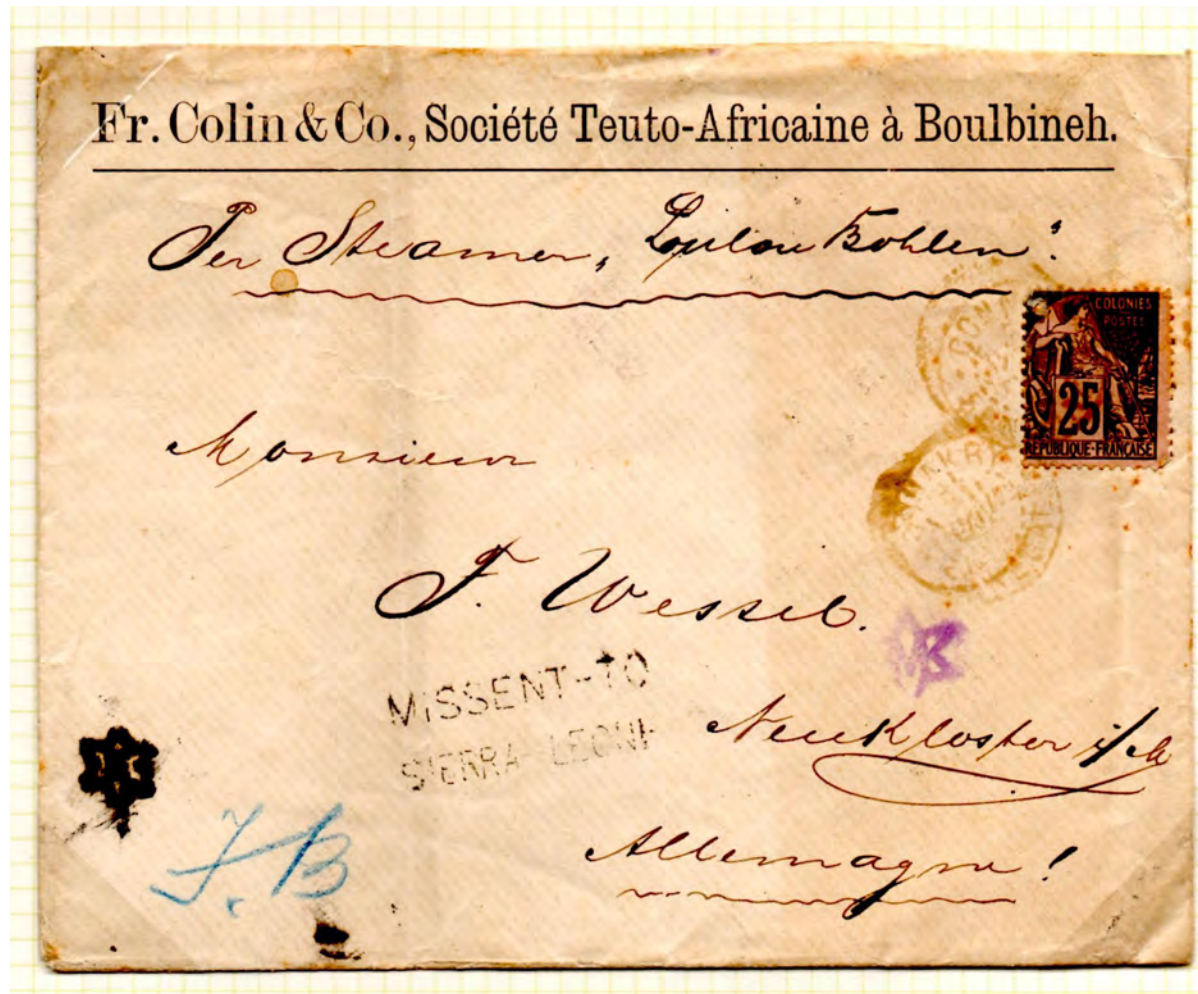 Fr. Colin & Co., Société Teuto-Africaine à Boulbineh.
Per Steamer „Loulou Bohlen“.
COLONIES
POSTES
25
RÉPUBLIQUE-FRANÇAISE
Monsieur
F. Wessel.
MISSENT-TO
SIERRA-LEONE
Neukloster i/M
Allemagne!
J.B